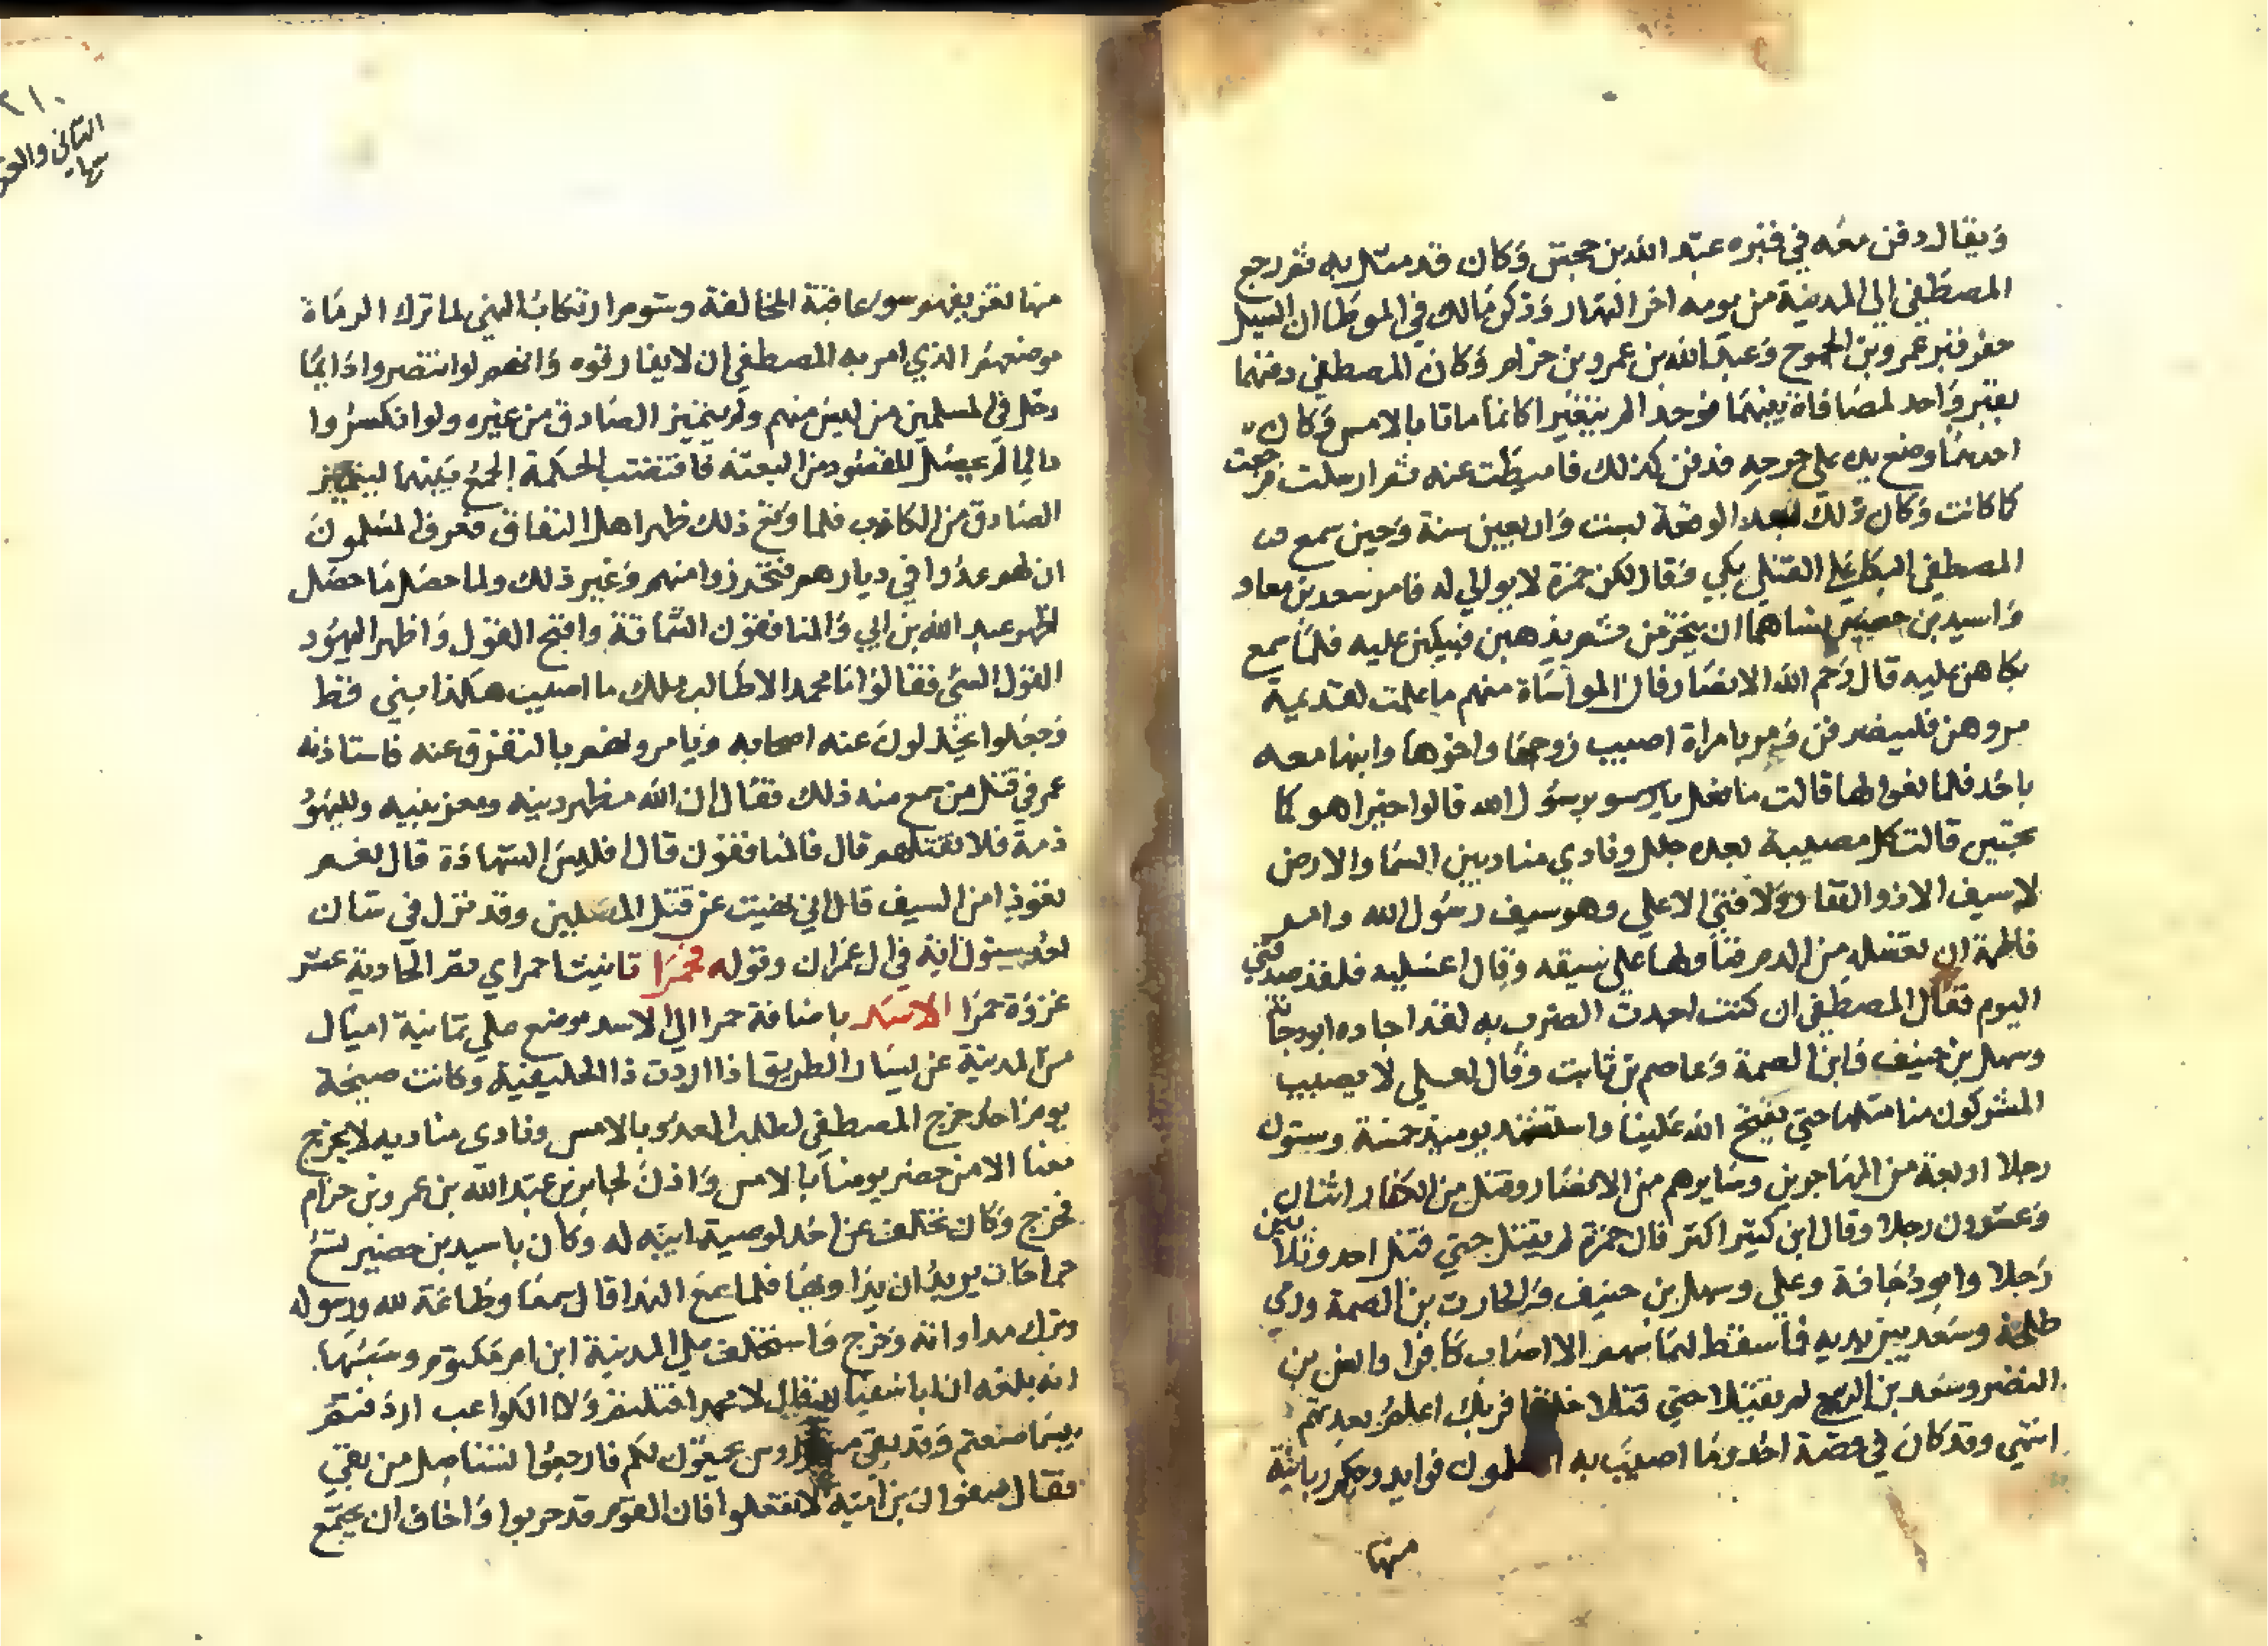 ويقال دفن معه في قبره عبد الله بن جحش وكان قد مثل به ثم رجع
المصطفى الى المدينة من يومه اخر النهار وذكر مالك في الموطا ان السيل
حفر قبر عمرو بن الجموح وعبد الله بن عمرو بن حرام وكان المصطفى دفنهما
بقبر واحد لمصافاة بينهما فوجدا لم يتغيرا كانما ماتا بالامس وكان
احدهما وضع يده على جرحه فدفن كذلك فاميطت عنه ثم ارسلت فرجعت
كما كانت وكان ذلك بعد الوقعة بست واربعين سنة وحين سمع
المصطفى البكا على القتلى بكي وقال لكن حمزة لا بواكي له فامر سعد بن معاد
واسيد بن حضير نساهما ان يتحزمن ثم يذهبن فيبكين عليه فلما سمع
بكاهن عليه قال رحم الله الانصار فان المواساة منهم ما علمت لقديمة
مروهن فلينصرفن ومر بامراة اصيب زوجها واخوها وابنها معه
باحد فلما نعوا لها قالت ما فعل رسول الله قالوا خيرا هو كما
تحبين قالت كل مصيبة بعده جلل ونادي مناد بين السما والارض
لا سيف الا ذو الفقار ولا فتى الا علي وهو سيف رسول الله وامر
فاطمة ان تغسله من الدم وناولها علي سيفه وقال اغسليه فلقد صدقني
اليوم فقال المصطفى ان كنت اجدت الضرب به لقد اجاده ابو دجانة
وسهل بن حنيف وابن الصمة وعاصم بن ثابت وقال لعلي لا يصيب
المشركون منا مثلها حتى يفتح الله علينا واستشهد يومئذ خمسة وستون
رجلا اربعة من المهاجرين وسايرهم من الانصار وقتل من الكفار اثنان
وعشرون رجلا وقال ابن كثير اكثر فان حمزة لم يقتل حتي قتل احد وثلاثين
رجلا وابو دجانة وعلي وسهل بن حنيف والحارث بن الصمة ورمي
طلحة وسعد بين يديه فما سقط لهما سهم الا اصاب كافرا وانس بن
النضر وسعد بن الربيع لم يقتلا حتي قتلا خلقا فربك اعلم بعدتهم
انتهي وقد كان في قصة احد وما اصيب به المسلمون فوايد وحكم ربانية
منها
منها تعريفهم سوء عاقبة المخالفة وشوم ارتكاب النهي لما ترك الرماة
موضعهم الذي امر به المصطفى ان لا يفارقوه وانهم لو انتصروا دايما
دخل في المسلمين من ليس منهم ولم يتميز الصادق من غيره ولو انكسروا
دايما لم يحصل المقصود من البعثة فاقتضت الحكمة الجمع بينهما ليتميز
الصادق من الكاذب فلما وقع ذلك ظهر اهل النفاق فعرف المسلمون
ان لهم عدوا في ديارهم فتحرزوا منهم وغير ذلك ولما حصل ما حصل
اظهر عبد الله بن ابي والمنافقون الشماتة واقبح القول واظهر اليهود
القول السئ فقالوا ما محمد الا طالب ملك ما اصيب هكذا نبي قط
وجعلوا يخذلون عنه اصحابه ويامرونهم بالتفرق عنه فاستاذنه
عمر في قتل من سمع منه ذلك فقال ان الله مظهر دينه ومعز نبيه ولليهود
ذمة فلا نقتلهم قال فالمنافقون قال افليس الشهادة قال نعم
تعوذا من السيف قال اني نهيت عن قتل المصلين وقد نزل في شان
احد ستون اية في ال عمران وقوله فحمرا تانيث احمر اي ثم الحادية عشر
غزوة حمرا الاسد باضافة حمرا الي الاسد موضع علي ثمانية اميال
من المدينة عن يسار الطريق اذا اردت ذا الحليفة وكانت صبيحة
يوم احد خرج المصطفى لطلب العدو بالامس ونادى مناديه لا يخرج
معنا الا من حضر يومنا بالامس واذن لجابر بن عبد الله بن عمرو بن حرام
فخرج وكان تخلف عن احد لوصية ابيه له وكان باسيد بن حضير تسع
جراحات يريد ان يداويها فلما سمع الندا قال سمعا وطاعة لله ورسوله
وترك مداواته وخرج واستخلف علي المدينة ابن ام مكتوم وسببها
انه بلغه ان ابا سفيان قال لا محمدا قتلتم ولا الكواعب اردفتم
بيسما صنعتم وقد بقي منهم روس يجمعون لكم فارجعوا لنستاصل من بقي
فقال صفوان بن امية لا تفعلوا فان القوم قد حربوا واخاف ان يجتمع
٢١٠